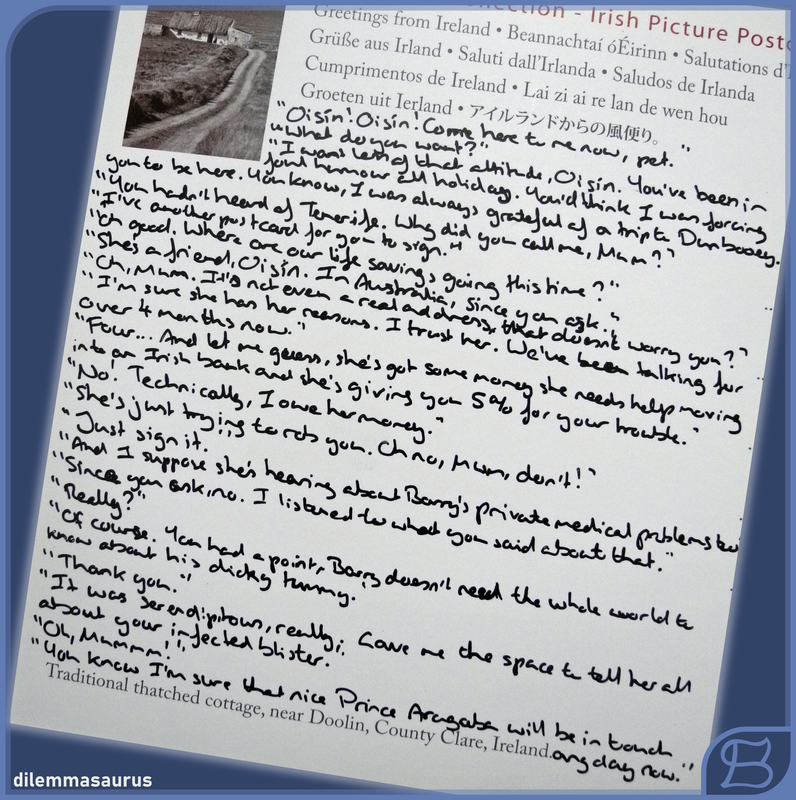 llection - Irish Picture Postc
Greetings from Ireland • Beannachtaí óÉirinn • Salutations d'I
Grüße aus Irland • Saluti dall'Irlanda • Saludos de Irlanda
Cumprimentos de Ireland • Lai zi ai re lan de wen hou
Groeten uit Ierland • アイルランドからの風便り。
"Oisín! Oisín! Come here to me now, pet."
"What do you want?"
"I want less of that attitude, Oisín. You've been in
foul humour all holiday. You'd think I was forcing
you to be here. You know, I was always grateful of a trip to Dunbooey."
"You hadn't heard of Tenerife. Why did you call me, Mum?"
"I've another postcard for you to sign."
"Oh good. Where are our life savings going this time?"
"She's a friend, Oisín. In Australia, since you ask."
"Oh, Mum. It's not even a real address, that doesn't worry you?"
"I'm sure she has her reasons. I trust her. We've been talking for
over 4 months now."
"Four... And let me guess, she's got some money she needs help moving
into an Irish bank and she's giving you 5% for your trouble."
"No! Technically, I owe her money."
"She's just trying to rob you. Oh no, Mum, don't!"
"Just sign it."
"And I suppose she's hearing about Barry's private medical problems too
"Since you ask, no. I listened to what you said about that."
"Really?"
"Of course. You had a point, Barry doesn't need the whole world to
know about his dicky tummy."
"Thank you."
"It was serendipitous, really. Gave me the space to tell her all
about your infected blister.
"Oh, Mummm!"
"You know I'm sure that nice Prince Aragaba will be in touch
any day now."
Traditional thatched cottage, near Doolin, County Clare, Ireland.
dilemmasaurus
B